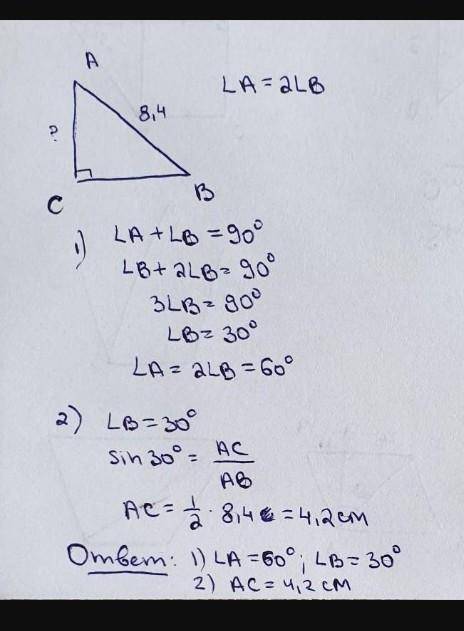 A
∠A = 2∠B
8,4
?
C
B
1) ∠A + ∠B = 90°
∠B + 2∠B = 90°
3∠B = 90°
∠B = 30°
∠A = 2∠B = 60°
2) ∠B = 30°
sin 30° = AC/AB
AC = 1/2 · 8,4 = 4,2 см
Ответ: 1) ∠A = 60°; ∠B = 30°
2) AC = 4,2 см